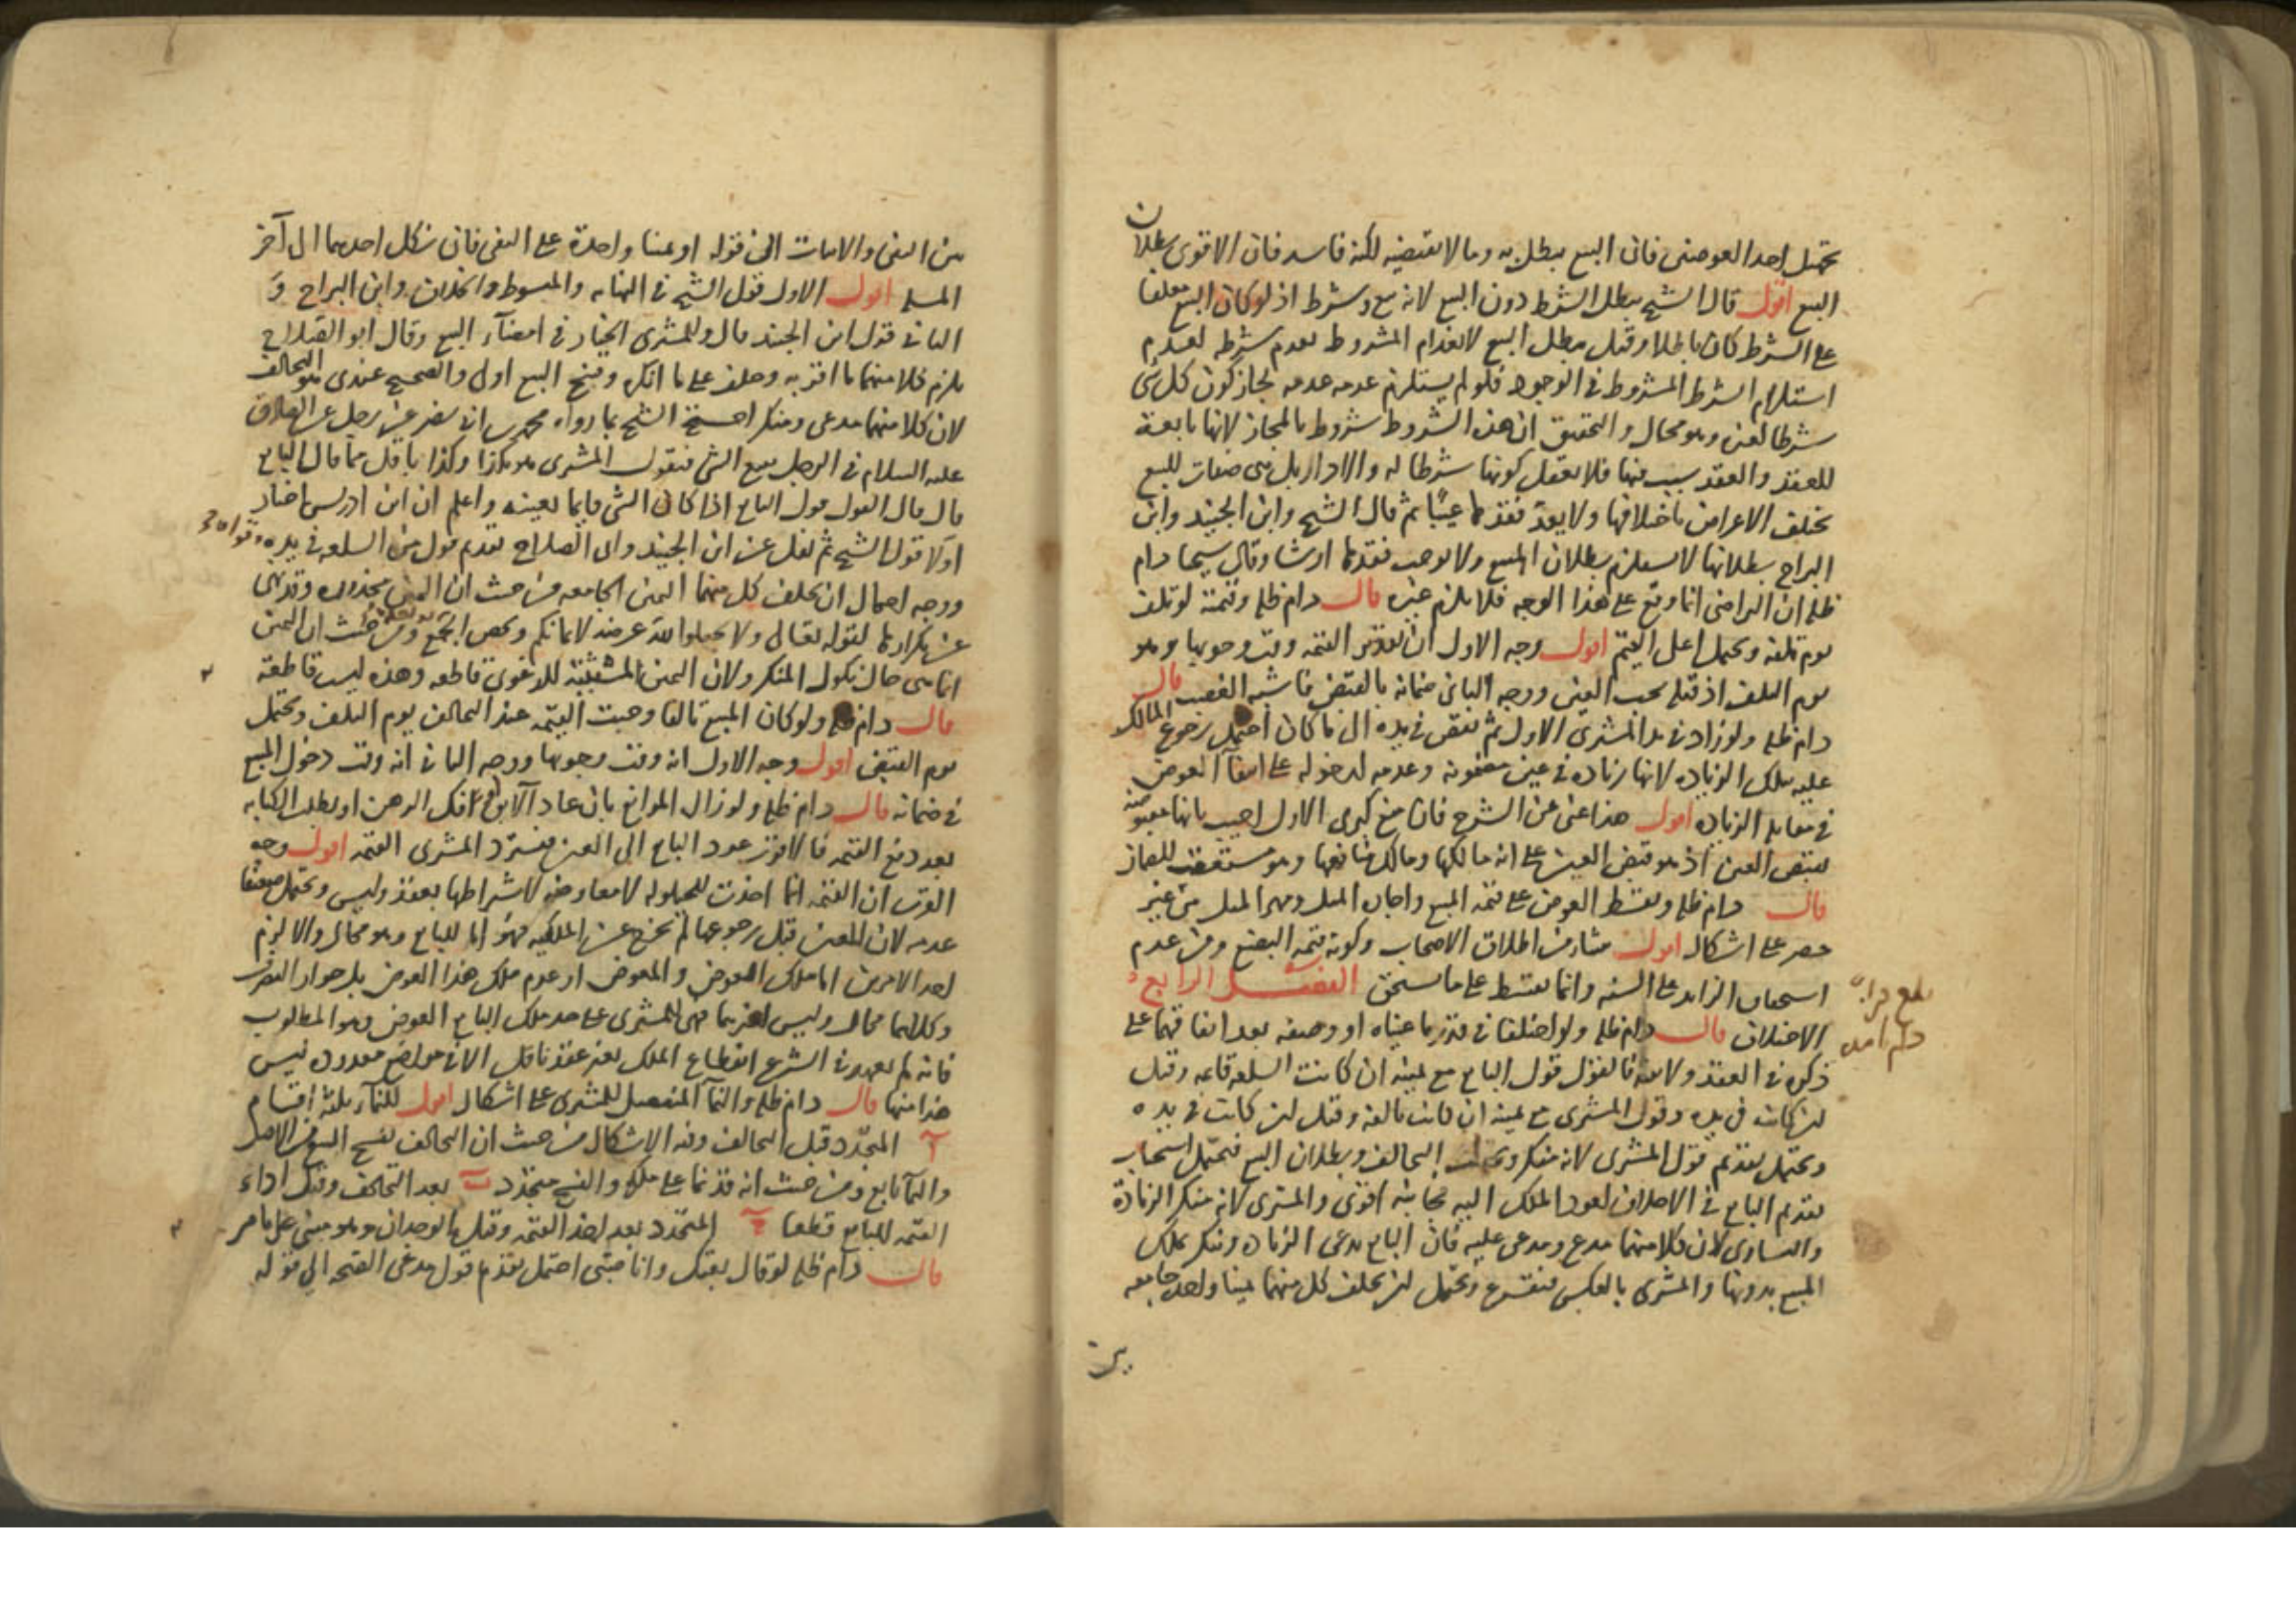 تحتمل احد العوضين فان البيع يبطل به وما لا يقتضيه لكنه فاسد فان الاقوى بطلان
البيع اقول قال الشيخ يبطل الشرط دون البيع لانه بيع وشرط اذ لو كان البيع معلقا
على الشرط كان باطلا وقيل يبطل البيع لانعدام المشروط بعدم شرطه لعدم
استلزام الشرط المشروط في الوجود فلو لم يستلزم عدمه عدمه لجاز كون كل شي
شرطا لغيره وهو محال والتحقيق ان هذه الشروط شروط بالمجاز لانها تابعة
للعقد والعقد سبب فيها فلا يعقل كونها شرطا له والا دار بل هي صفات للبيع
تختلف الاعراض باختلافها ولا يعد فقدها عيبا ثم قال الشيخ وابن الجنيد وابن
البراج بطلانها لا يستلزم بطلان المبيع ولا يوجب فقدها ارشا وقال شيخنا دام
ظله ان التراضي انما وقع على هذا الوجه فلا يلزم غيره قال دام ظله وقيمته لو تلف
يوم تلفه ويحتمل اعلى القيم اقول وجه الاول ان تقدير القيمة وقت وجوبها وهو
يوم التلف اذ قبله يجب العين ووجه الثاني ضمانه بالقبض فاشبه الغصب قال
دام ظله ولو زاد في يد المشتري الاول ثم نقص في يده الى ما كان احتمل رجوع المالك
عليه بتلك الزيادة لانها زيادة في عين مضمونة وعدمه لدخوله على انتفاء العوض
في مقابلة الزيادة اقول هذا غني عن الشرح فان منع كبرى الاول اجيب بانها مقبوضة
بقبض العين اذ هو قبض العين على انه مالكها ومالك منافعها وهو مستعقب للضمان
قال دام ظله ويقسط العوض على قيمة المبيع واجارة المثل ومهر المثل من غير
حصر على اشكال اقول ينشا من اطلاق الاصحاب وكونه قيمة البضع ومن عدم
استحقاق الزايد على السنة وانما يقسط على ما يستحق الفصل الرابع في
الاختلاف قال دام ظله ولو اختلفا في قدر ما عيناه او وصفه بعد اتفاقهما على
بلغ قراءة
دام
ذكره في العقد ولا بينة فالقول قول البايع مع يمينه ان كانت السلعة قايمة وقيل
ان كانت في يده وقول المشتري مع يمينه ان كانت تالفة وقيل ان كانت في يده
ويحتمل تقديم قول المشتري لانه منكر و التحالف وبطلان البيع فيحتمل استحباب
تقديم البايع في الاحلاف لعود الملك اليه فجانبه اقوى والمشتري لانه منكر الزيادة
والتساوي لان كلا منهما مدع ومدعى عليه فان البايع يدعي الزيادة وينكر تملك
المبيع بدونها والمشتري بالعكس فيقرع ويحتمل ان يحلف كل منهما يمينا واحدة جامعة
بين
بين النفي والاثبات الى قوله او يمينا واحدة على النفي فان نكل احدهما الى آخر
المسلة اقول الاول قول الشيخ في النهاية والمبسوط والخلاف وابن البراج و
الثاني قول ابن الجنيد قال وللمشتري الخيار في امضاء البيع وقال ابو الصلاح
يلزم كلا منهما ما اقر به وحلف على ما انكره وفسخ البيع اولى والصحيح عندي هو التحالف
لان كلا منهما مدعي ومنكر احتج الشيخ بما رواه محمد بن ابي نصر عن رجل عن الصادق
عليه السلام في الرجل يبيع الشي فيقول المشتري هو بكذا وكذا باقل مما قال البايع
قال قال القول قول البايع اذا كان الشي قايما بعينه واعلم ان ابن ادريس اختار
اولا قول الشيخ ثم نقل عن ابن الجنيد وابي الصلاح تقديم قول من السلعة في يده وقواه
ووجه احتمال ان يحلف كل منهما اليمين الجامعة من حيث ان اليمين محذورة وقد نهى
عن تكرارها لقوله تعالى ولا تجعلوا الله عرضة لايمانكم ومن حيث ان اليمين
انما هي حال نكول المنكر ولان اليمين المثبتة للدعوى قاطعة وهذه ليست قاطعة
قال دام ظله ولو كان المبيع تالفا وجبت القيمة عند التحالف يوم التلف ويحتمل
يوم القبض اقول وجه الاول انه وقت وجوبها ووجه الثاني انه وقت دخول المبيع
في ضمانه قال دام ظله ولو زال الموانع بان عاد الآبق او فك الرهن او بطلت الكتابة
بعد دفع القيمة فالاقرب عود البايع الى العين فيسترد المشتري القيمة اقول وجه
القرب ان القيمة انما اخذت للحيلولة لا معاوضة لاشتراطها بعقد وليس ويحتمل ضعيفا
عدمه لان العين قبل رجوعها لم يخرج عن الملكية فهو اما للبايع وهو محال والا لزم
احد الامرين اما ملك العوض والمعوض او عدم ملك هذا العوض بل جواز التصرف
وكلاهما محال وليس لغيرهما فهي للمشتري على حد ملك البايع العوض وهو المطلوب
فانه لم يعهد في الشرع انقطاع الملك بغير عقد ناقل الا في مواضع معدودة ليس
هذا منها قال دام ظله والنماء المنفصل للمشتري على اشكال اقول للنماء ثلثة اقسام
آ المتجدد قبل التحالف وفيه الاشكال من حيث ان التحالف يفسخ البيع من الاصل
والنماء تابع ومن حيث انه قد نما على ملكه والفسخ متجدد ب بعد التحالف وقبل اداء
القيمة للبايع قطعا ج المتجدد بعد اخذ القيمة وقبل الوجدان وهو مبني على ما مر
قال دام ظله لو قال بعتك وانا صبي احتمل تقديم قول مدعي الصحة الى قوله